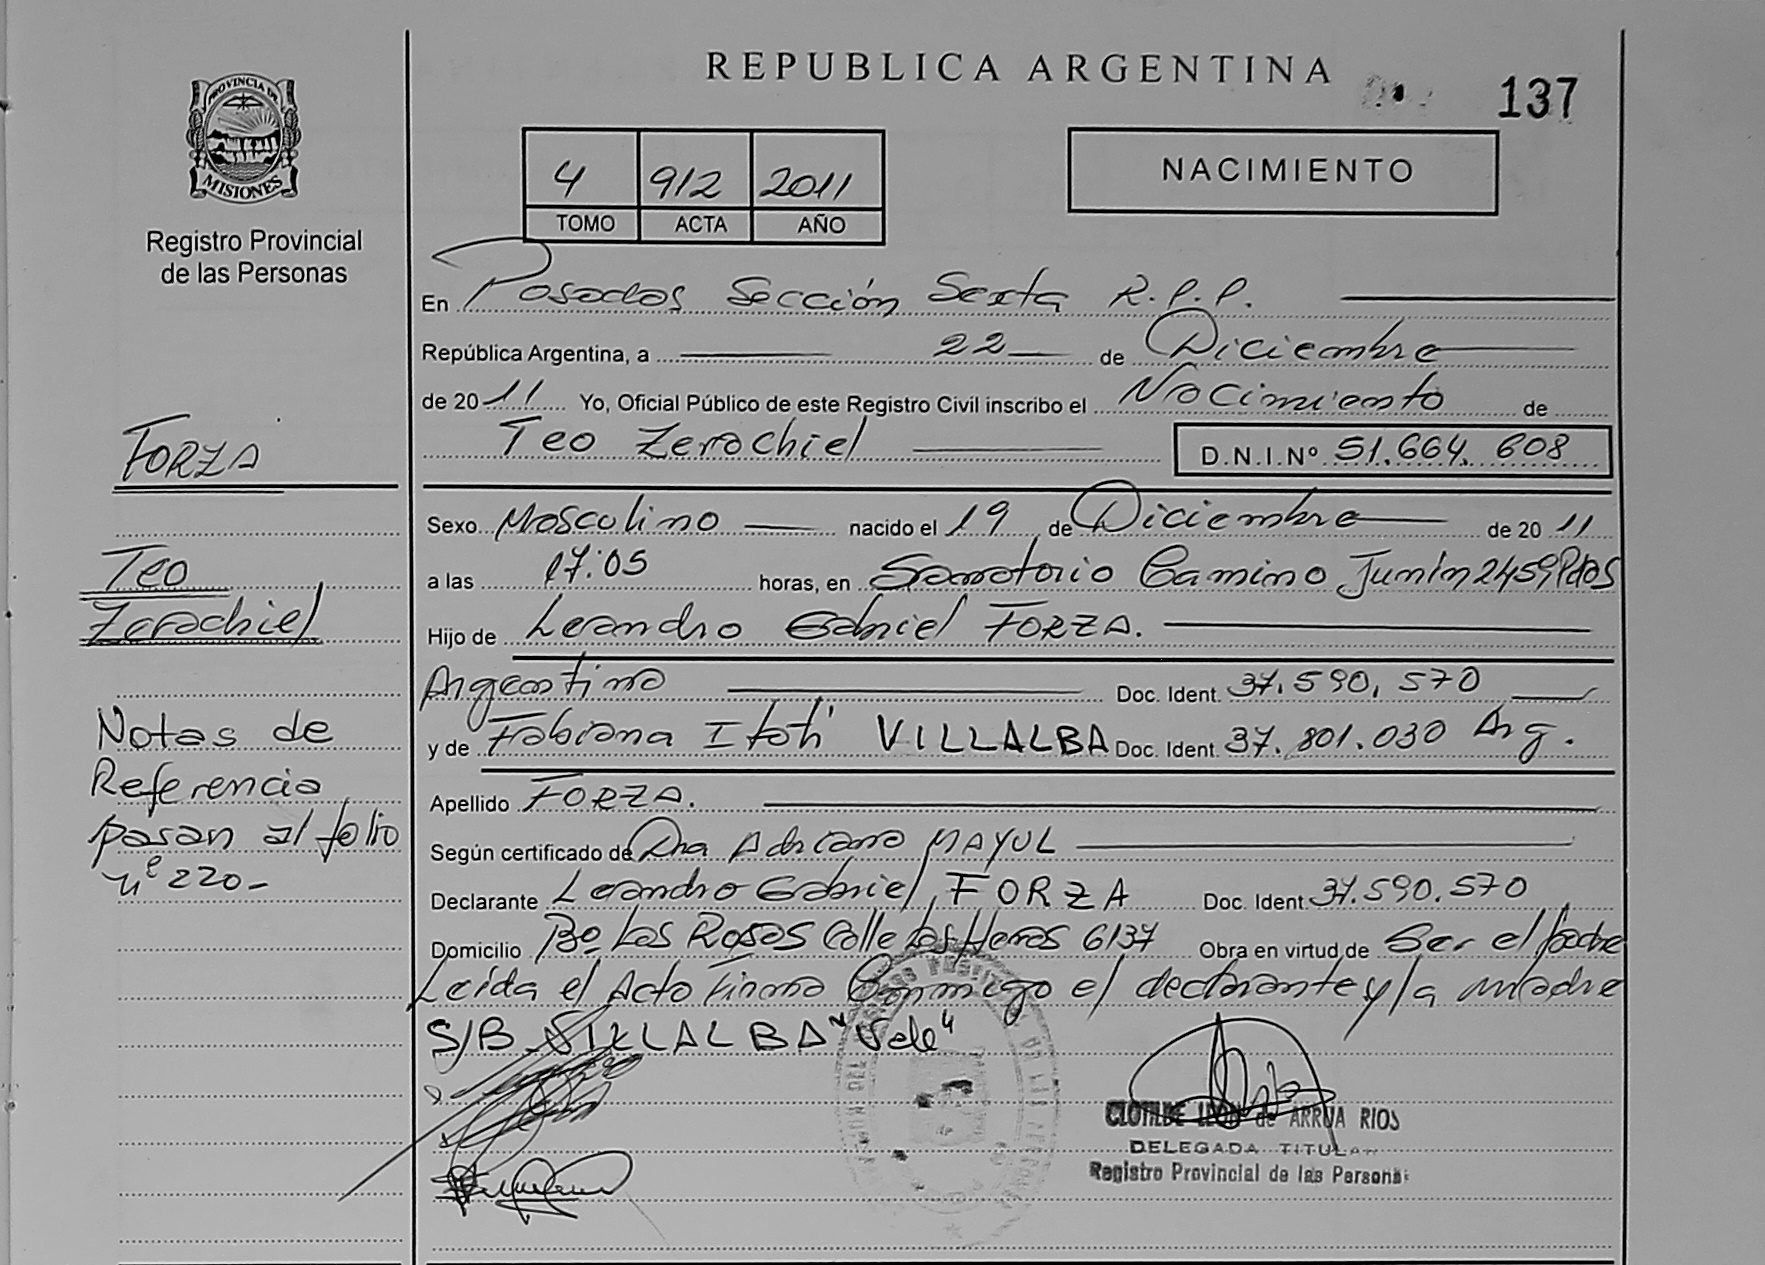 REPUBLICA ARGENTINA
137
PROVINCIA DE
MISIONES
Registro Provincial
de las Personas
4 912 2011
TOMO ACTA AÑO
NACIMIENTO
En Posadas Sección Sexta R.P.P.
República Argentina, a 22 de Diciembre
de 2011 Yo, Oficial Público de este Registro Civil inscribo el Nacimiento de
Teo Zerachiel D.N.I.Nº 51.664.608
FORZA
Teo
Zerachiel
Sexo Masculino nacido el 19 de Diciembre de 2011
a las 17:05 horas, en Sanatorio Camino Junín 2459 Pdas
Hijo de Leandro Gabriel FORZA.
Argentino Doc. Ident. 37.590.570
y de Fabiana Itatí VILLALBA Doc. Ident. 37.801.030 Arg.
Apellido FORZA.
Según certificado de Dra Adriana MAYUL
Declarante Leandro Gabriel, FORZA Doc. Ident. 37.590.570
Domicilio Bo. Las Rosas Calle Las Heras 6137 Obra en virtud de Ser el padre
Leída el Acta Firman Conmigo el declarante y la madre
S/B VILLALBA "Vale"
Notas de
Referencia
pasan al folio
nº 220-
CLOTILDE LEON de ARRUA RIOS
DELEGADA TITULAR
Registro Provincial de las Personas